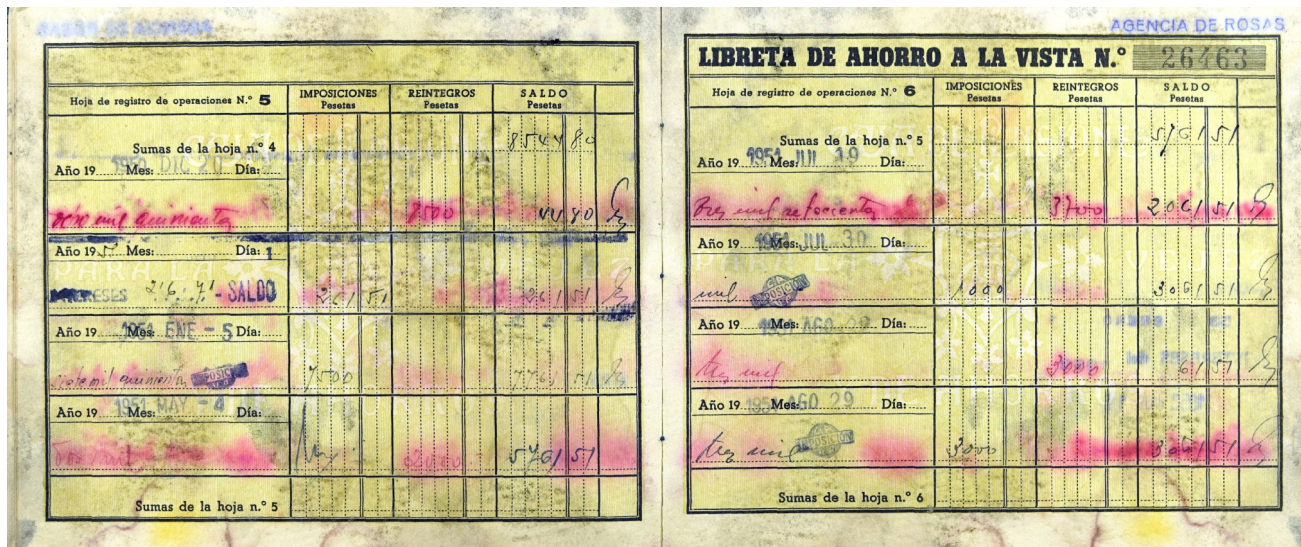 Hoja de registro de operaciones N.º 5 IMPOSICIONES Pesetas REINTEGROS Pesetas SALDO Pesetas
Sumas de la hoja n.º 4 8544 80
Año 19 Mes: Día:
1950 DIC 20
mil quinientas 8500 44 80
Año 195 Mes: Día: 1
INTERESES - SALDO 261 51
Año 19 Mes: Día:
1951 ENE - 5
siete mil quinientas 7500 7761 51
Año 19 Mes: Día:
1951 MAY - 4
Dos mil 2000 5761 51
Sumas de la hoja n.º 5
AGENCIA DE ROSAS
LIBRETA DE AHORRO A LA VISTA N.º 26463
Hoja de registro de operaciones N.º 6 IMPOSICIONES Pesetas REINTEGROS Pesetas SALDO Pesetas
Sumas de la hoja n.º 5 5761 51
Año 19 Mes: Día:
1951 JUL 19
tres mil setecientas 3700 2061 51
Año 19 Mes: Día:
1951 JUL 30
mil IMPOSICION 1000 3061 51
Año 19 Mes: Día:
1951 AGO 29
tres mil 3000 61 51
Año 19 Mes: Día:
1951 AGO 29
tres mil IMPOSICION 3000 3061 51
Sumas de la hoja n.º 6